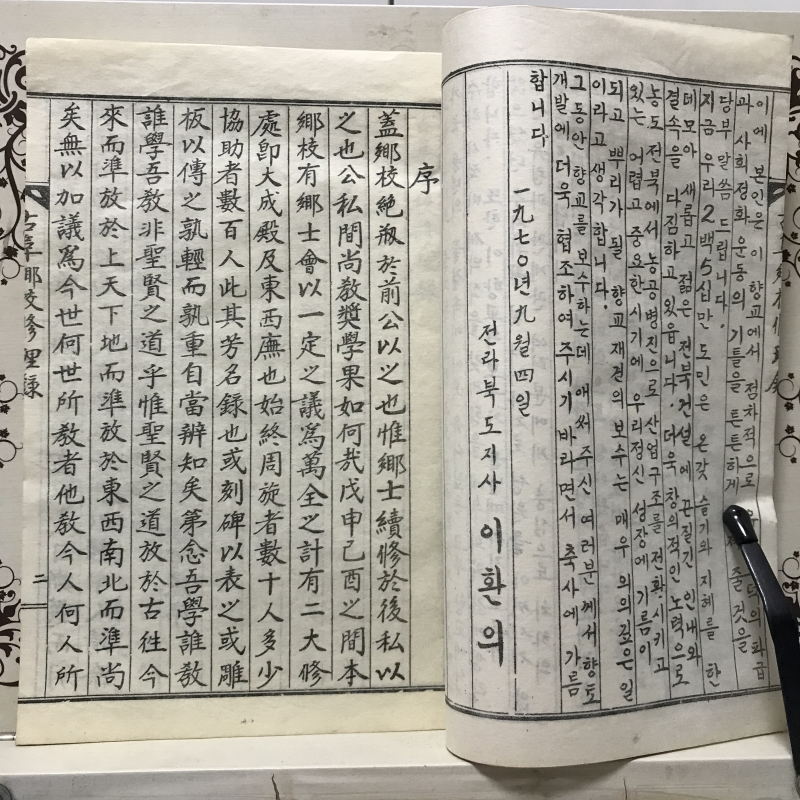 이에 본인은 이 향교에서 점차적으로 덕의 파급
과 사회정화 운동의 기틀을 튼튼하게 줄 것을
당부 말씀 드립니다.
지금 우리 2백5십만 도민은 온갖 슬기와 지혜를 한
데모아 새롭고 젊은 전북건설에 끈질긴 인내와
결속을 다짐하고 있읍니다. 더욱 창의적인 노력으로
농도 전북에서 농공병진으로 산업구조를 전환시키고
있는 어렵고 중요한 시기에 우리정신 성장에 기름이
되고 뿌리가 될 향교재견의 보수는 매우 의의 깊은 일
이라고 생각합니다.
그동안 향교를 보수하는데 애써 주신 여러분께서 향토
개발에 더욱 협조하여 주시기 바라면서 축사에 가름
합니다
一九七○년 九월 四일
전라북도지사 이환의
序
蓋鄉校絶瓶於前公以之也惟鄉士續修於後私以
之也公私間尚敎奬學果如何哉戊申己酉之間本
鄉校有鄉士會以一定之議爲萬全之計有二大修
處卽大成殿及東西廡也始終周旋者數十人多少
協助者數百人此其芳名録也或刻碑以表之或雕
板以傳之孰輕而孰重自當辨知矣第念吾學誰敎
誰學吾敎非聖賢之道乎惟聖賢之道放於古往今
來而準放於上天下地而準放於東西南北而準尚
矣無以加議爲今世何世所敎者他敎今人何人所
古阜鄉校修理録
二